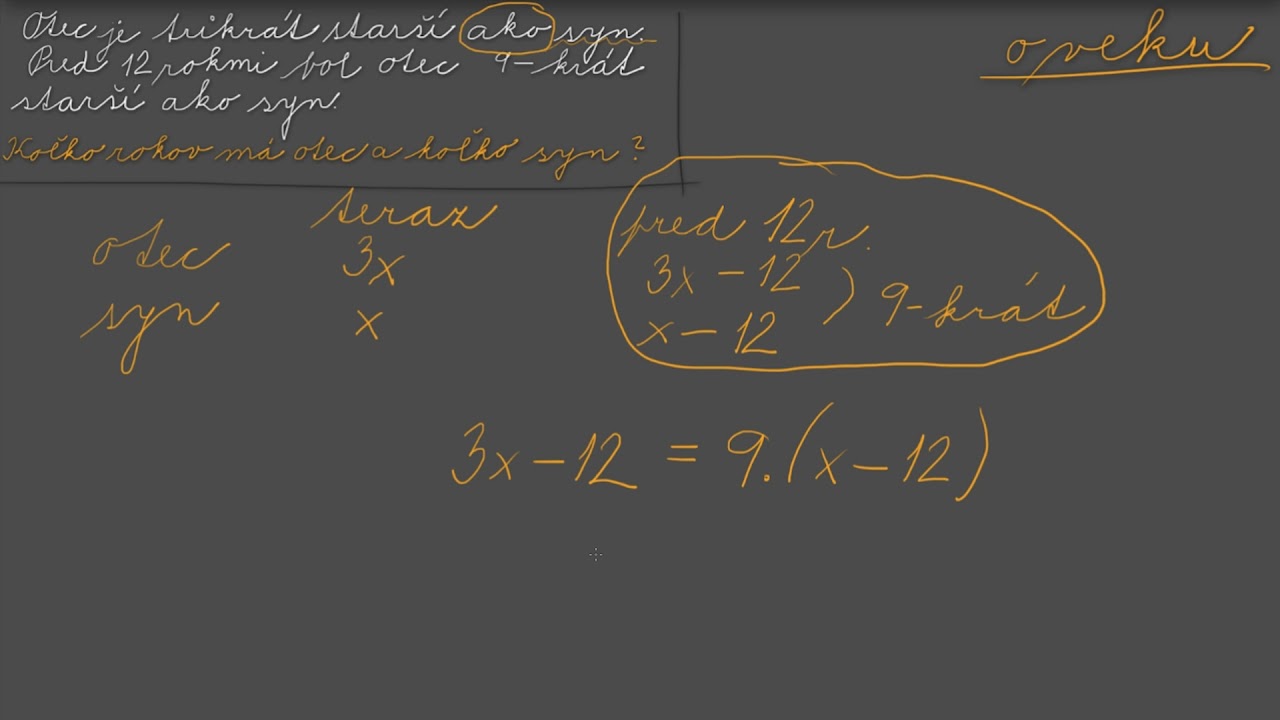 Otec je trikrát starší ako syn.
Pred 12 rokmi bol otec 9-krát
starší ako syn.
Koľko rokov má otec a koľko syn?
o veku
teraz
pred 12 r.
otec 3x 3x - 12
syn x x - 12
) 9-krát
3x - 12 = 9.(x - 12)